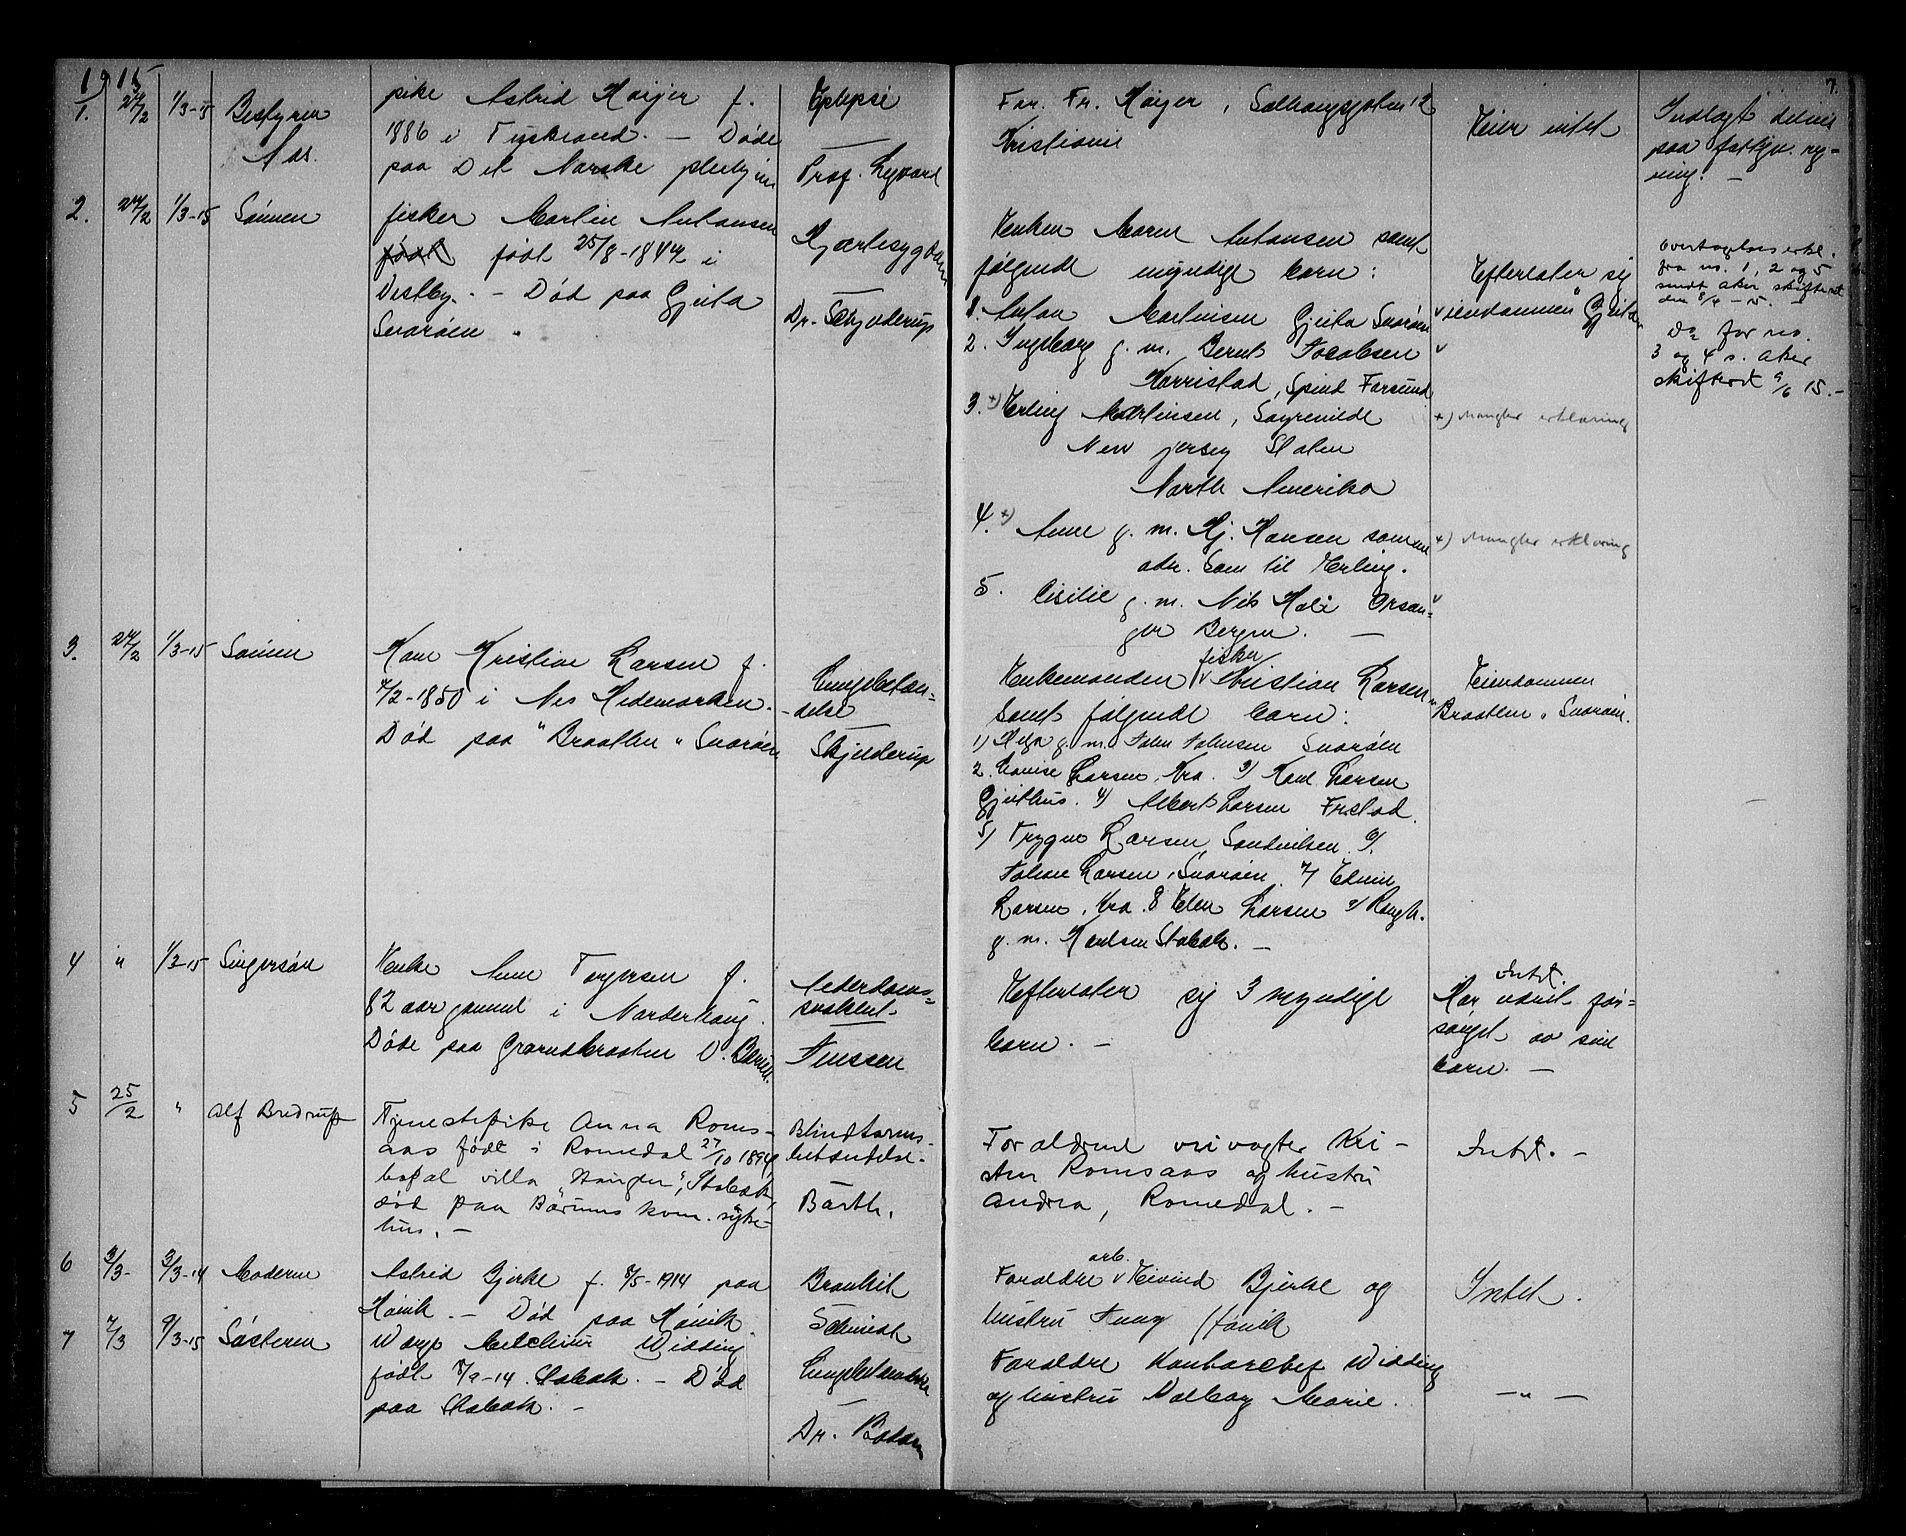 1915
7.
1. 24/2 1/3-15 Bestyreren
pike Astrid Høijer f.
1886 i Tyskland. — Døde
paa Det Norske pleiehjem
Epilepsi
Prof.
Far. Fr. Høijer, Sølbergsgaten 12
Kristiania
Eier intet
Indlagt
paa fattigv. reg-
ning. —
2. 24/2 1/3-15 Sønnen
fisker Martin Antonsen
født 25/8-1844 i
Vestby. — Død paa Gjeita
Snarøen.
Hjertesygdom
Dr. Schjelderup
Enken Maren Antonsen samt
følgende myndige barn:
1. Anton Martinsen Gjeita Snarøen
2. Ingeborg g. m. Bernt Jacobsen
Harristad, Spind Farsund
3. +) Erling Martinsen, Sayreville
New jersey Staten
North Amerika
4. +) Anne g. m. Hj. Hansen samme
adr. som til Erling.
5. Cicilie g. m. Nils
Bergen. —
Efterlater sig
eiendommen "Gjeita"
+) Mangler erklæring
+) Mangler erklæring
Overtagelseserkl.
fra no. 1, 2 og 5
sendt Aker skifteret
den 8/4-15. —
Do for no.
3 og 4 s. Aker
skifteret 9/6 15.-
3. 24/2 1/3-15 Sønnen
Kone Kristine Larsen f.
7/2-1850 i Nes Hedemarken.
Død paa "Braatten" Snarøen
Lungebetæn-
delse
Skjelderup
Enkemanden fisker Kristian Larsen
samt følgende barn:
1) Helga g. m. Johan Johansen Snarøen
2. Louise Larsen, Kra. 3) Karl Larsen
Gjeithus. 4) Albert Larsen
5) Trygve Larsen, Sandviken 6).
Johan Larsen, Snarøen. 7) Edvin
Larsen, Kra. 8 Elen Larsen 9) Rangh.
g. m. Karlsen Stabæk. —
Eiendommen
Braatten, Snarøen.
4 " 1/3-15 Svigersøn
Enke Anne Torgersen f.
82 aar gammel i Norderhaug.
Døde paa Grandbraaten V. Bærum.
Alderdoms-
svakhet.
Jenssen
Efterlater sig 3 myndige
barn. —
Intet.
Har været for-
sørget av sine
barn. —
5 25/2 " Alf Bredrup
Tjenestepike Anna Roms-
aas født i Romedal 27/10 1894,
bopæl villa "Hauger", Stabæk,
død paa Bærums kom. syke-
hus. —
Blindtarms-
betændelse.
Barth.
Forældrene veivogter Kri-
sten Romsaas og hustru
Andrea, Romedal. —
Intet. —
6 3/3- 3/3-14 Moderen
Astrid Bjerke f. 7/5-1914 paa
Høvik. — Død paa Høvik.
Bronkit
Schmidt
Forældre arb. Eivind Bjerke og
hustru Jenny Høvik
Intet.
7 7/3 9/3-15 Søsteren
Melchior Widding
født 7/9-14 Stabæk. — Død
paa Stabæk. —
Lungebetændelse
Dr.
Forældre Kontorchef Widding
og hustru Valborg Marie.
— " —